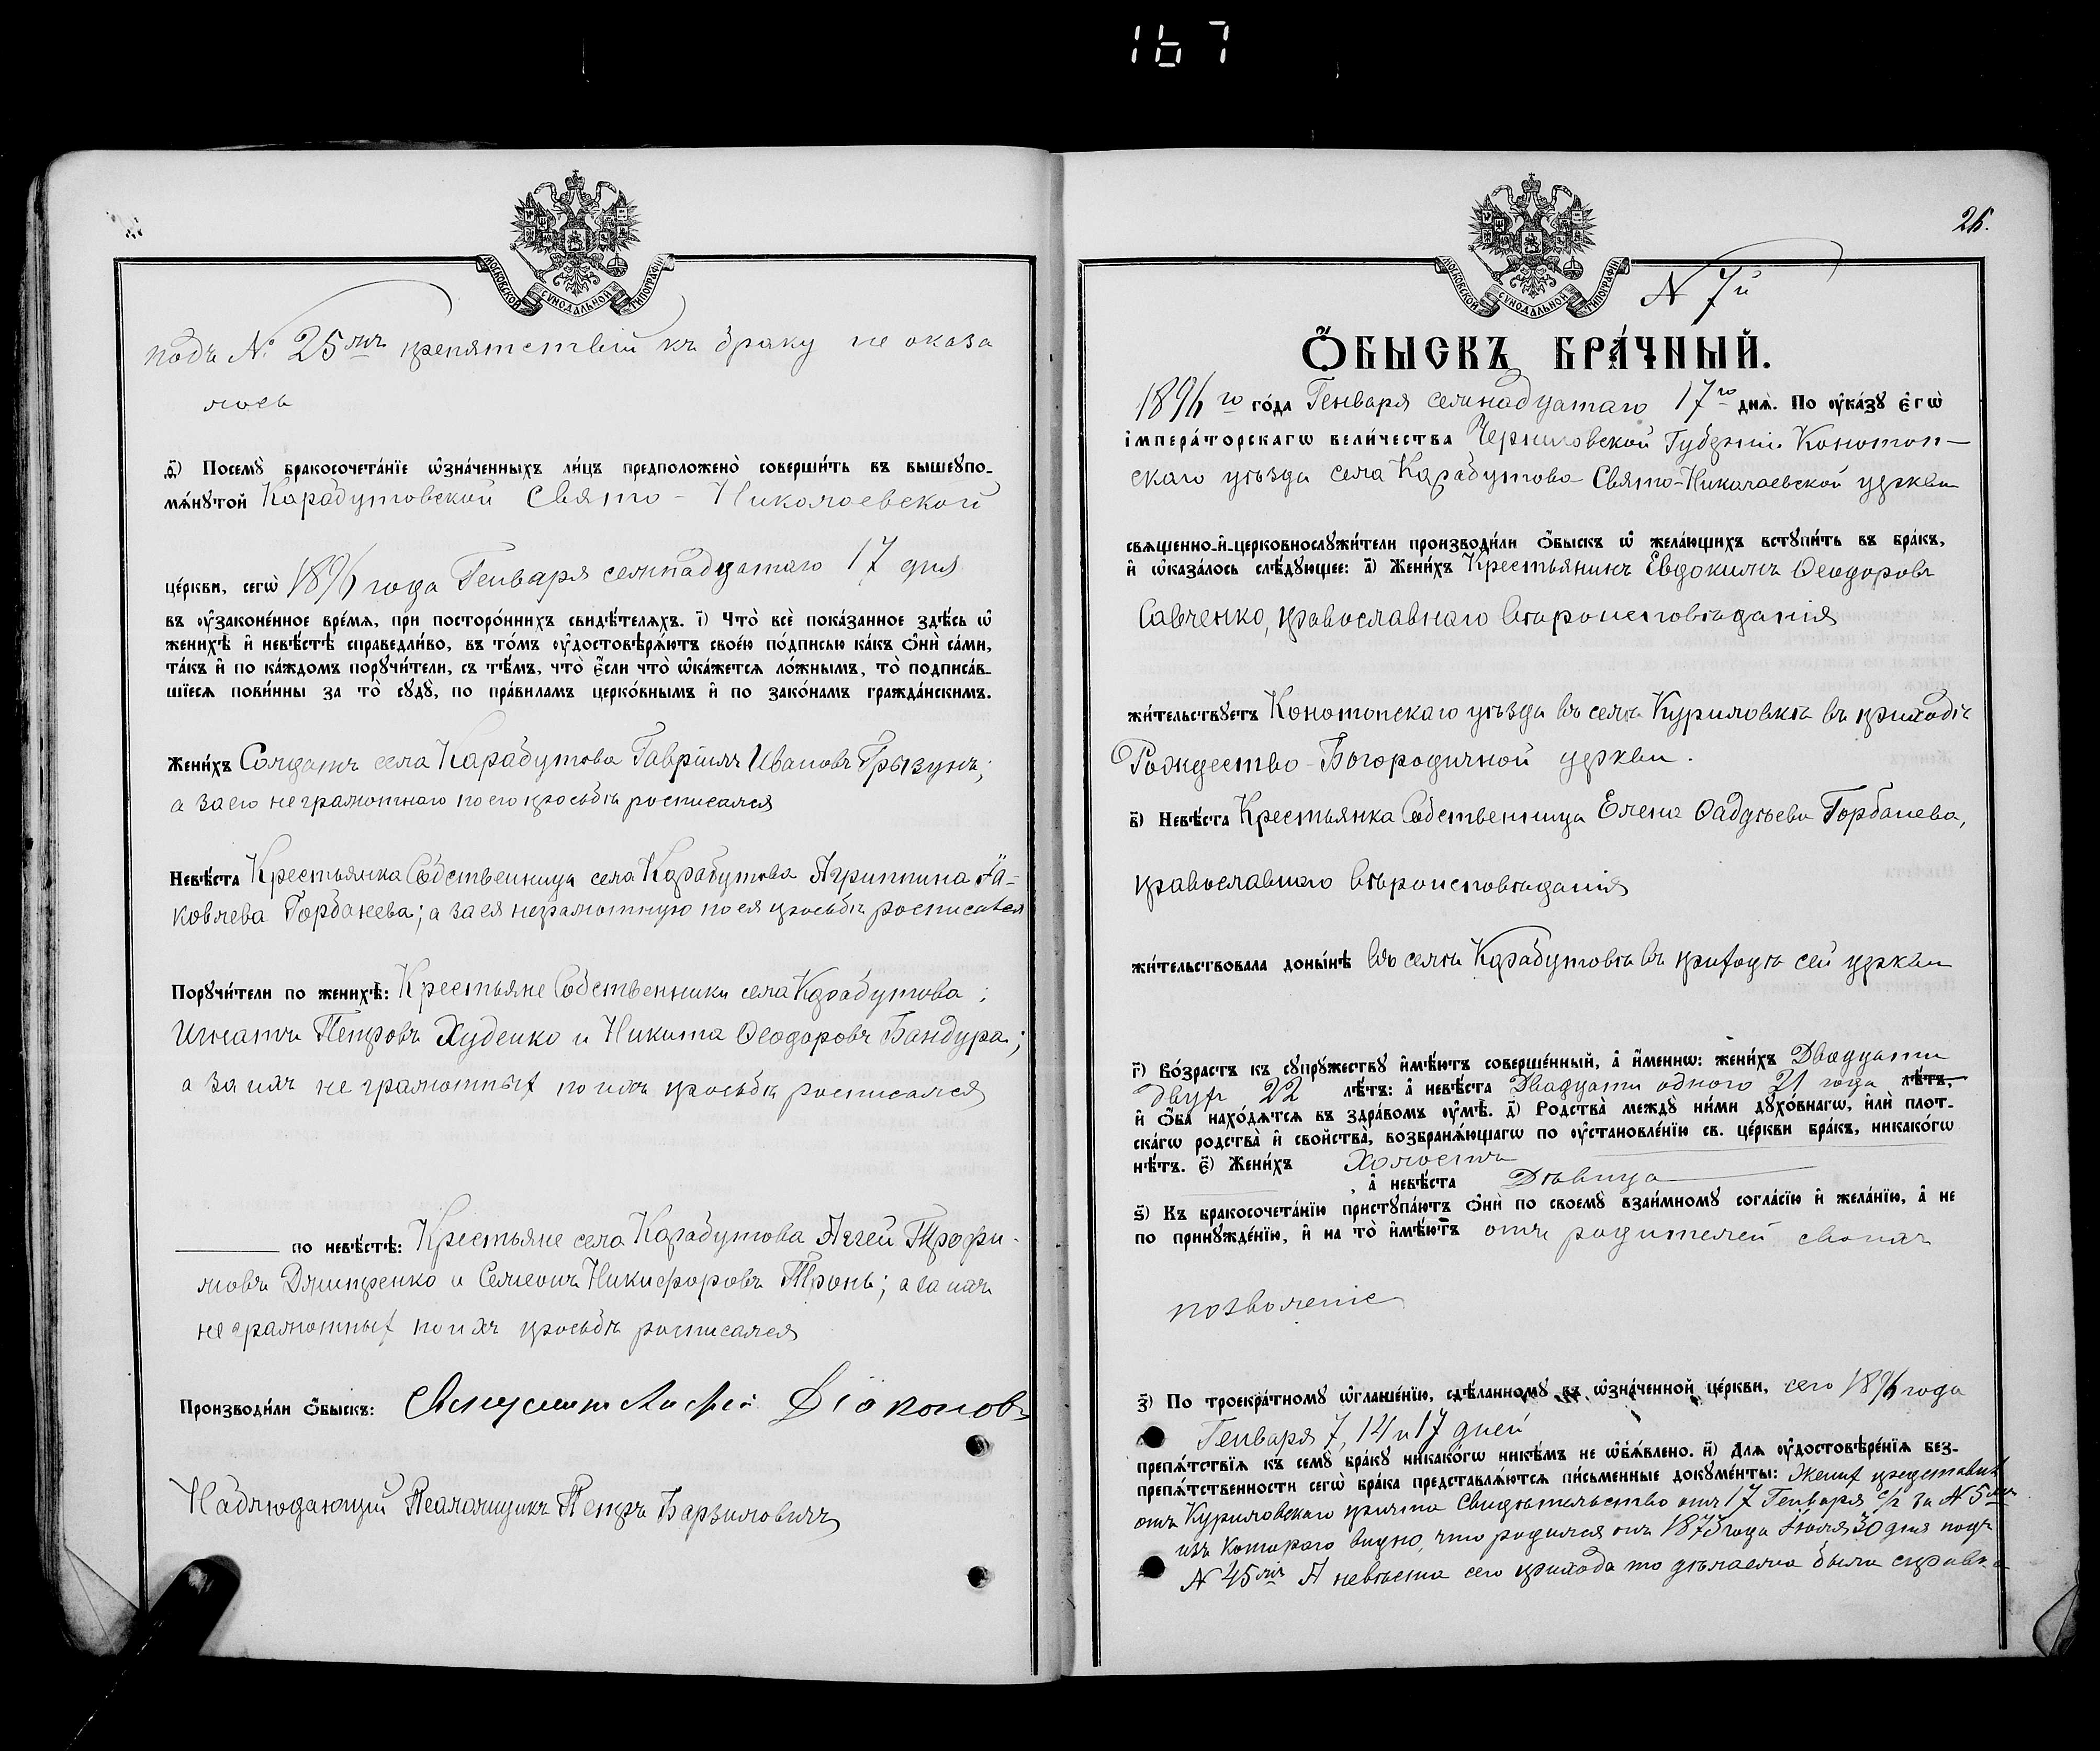 167
МОСКОВСКОЙ СѴНОДАЛЬНОЙ ТИПОГРАФІИ
подъ № 25мъ препятствій къ браку не оказа
лось
Ѳ҃) Посемꙋ̀ бракосочета́нїе ѡ҆зна́ченныхъ ли́цъ предположено̀ соверши́ть въ вышеꙋпо-
мѧ́нꙋтой Карабутовской Свято-Николаевской
це́ркви, сегѡ̀ 1896 года Генваря семнадцатаго 17 дня
въ ᲂу҆зако́ненное вре́мѧ, при посторо́ннихъ свидѣ́телѧхъ. і҃) Что̀ всѐ пока́занное здѣ́сь ѡ҆
женихѣ̀ и҆ невѣ́стѣ справедли́во, въ то́мъ ᲂу҆достовѣрѧ́ютъ свое́ю по́дписью ка́къ ѻ҆нѝ са́ми,
та́къ и҆ по ка́ждомъ порꙋчи́тели, съ тѣ́мъ, что̀ є҆́сли что̀ ѡ҆ка́жетсѧ ло́жнымъ, то̀ подписа́в-
шїесѧ пови́нны за то̀ сꙋдꙋ̀, по пра́виламъ церко́внымъ и҆ по зако́намъ гражда́нскимъ.
Жени́хъ Солдатъ села Карабутова Гавріилъ Ивановъ Грызунъ;
а за его неграмотнаго по его просьбѣ росписался
Невѣ́ста Крестьянка Собственница села Карабутова Агриппина Яа-
ковлева Горбанева; а за ея неграмотную по ея просьбѣ росписался
Порꙋчи́тели по женихѣ̀: Крестьяне Собственники села Карабутова;
Игнатъ Петровъ Худенко и Никита Ѳеодоровъ Бандура;
а за ихъ не грамотныхъ по ихъ просьбѣ росписался
по невѣ́стѣ: Крестьяне села Карабутова Аггей Трофи-
мовъ Дмитренко и Симеонъ Никифоровъ Тронь; а за ихъ
не грамотныхъ по ихъ просьбѣ росписался
Производи́ли ѻ҆́быскъ: Діаконовъ
Наблюдающій Псаломщикъ Петръ Барзиловичъ
26.
МОСКОВСКОЙ СѴНОДАЛЬНОЙ ТИПОГРАФІИ
N 7й
Ѻ҆́БЫСКЪ БРА́ЧНЫЙ.
1896го го́да Генваря семнадцатаго 17го днѧ̀. По ᲂу҆ка́зꙋ є҆гѡ̀
і҆мпера́торскагѡ вели́чества Черниговской Губерніи Конотоп-
скаго уѣзда села Карабутова Свято-Николаевской церкви
свѧщенно-и҆-церковнослꙋжи́тели производи́ли ѻ҆́быскъ ѡ҆ жела́ющихъ встꙋпи́ть въ бра́къ,
и҆ ѡ҆каза́лось слѣ́дꙋющее: а҃) Жени́хъ Крестьянинъ Евдокимъ Ѳеодоровъ
Савченко, православнаго вѣроисповѣданія
жи́тельствꙋетъ Конотопскаго уѣзда въ селѣ Куриловкѣ въ приходѣ
Рождество-Богородичной церкви.
в҃) Невѣ́ста Крестьянка Собственница Елена Ѳадѣева Горбанева,
православнаго вѣроисповѣданія
жи́тельствовала доны́нѣ въ селѣ Карабутовѣ въ приходѣ сей церкви
г҃) Во́зрастъ къ сꙋпрꙋ́жествꙋ и҆мѣ́ютъ соверше́нный, а҆ и҆́меннѡ: жени́хъ Двадцати
двухъ 22 лѣ́тъ: а҆ невѣ́ста Двадцати одного 21 года лѣ́тъ,
и҆ ѻ҆́ба нахо́дѧтсѧ въ здра́вомъ ᲂу҆мѣ̀. д҃) Родства̀ междꙋ̀ ни́ми дꙋхо́внагѡ, и҆лѝ плот-
ска́гѡ родства̀ и҆ сво́йства̀, возбранѧ́ющагѡ по ᲂу҆становле́нїю св. це́ркви бра́къ, никако́гѡ
нѣ́тъ. є҃) Жени́хъ Холостъ
, а҆ невѣ́ста Дѣвица
ѕ҃) Къ бракосочета́нїю пристꙋпа́ютъ ѻ҆нѝ по своемꙋ̀ взаи́мномꙋ согла́сїю и҆ жела́нїю, а҆ не
по принꙋжде́нїю, и҆ на то̀ и҆мѣ́ютъ отъ родителей своихъ
позволеніе
з҃) По троекра́тномꙋ ѡ҆глаше́нїю, сдѣ́ланномꙋ въ ѡ҆зна́ченной це́ркви, сего 1896 года
Генваря 7, 14 и 17 дней
препѧ́тствїѧ къ семꙋ̀ бра́кꙋ никако́гѡ никѣ́мъ не ѡ҆б̾ѧ́влено. и҃) Длѧ ᲂу҆достовѣре́нїѧ без-
препѧ́тственности сегѡ̀ бра́ка представлѧ́ютсѧ пи́сьменные докꙋме́нты: Женихъ представилъ
отъ Куриловскаго причта Свидѣтельство отъ 17 Генваря с/г за N 5мъ
изъ котораго видно, что родился онъ 1873 года Іюля 30 дня подъ
N 45мъ А невѣста сего прихода то дѣлаема была справка